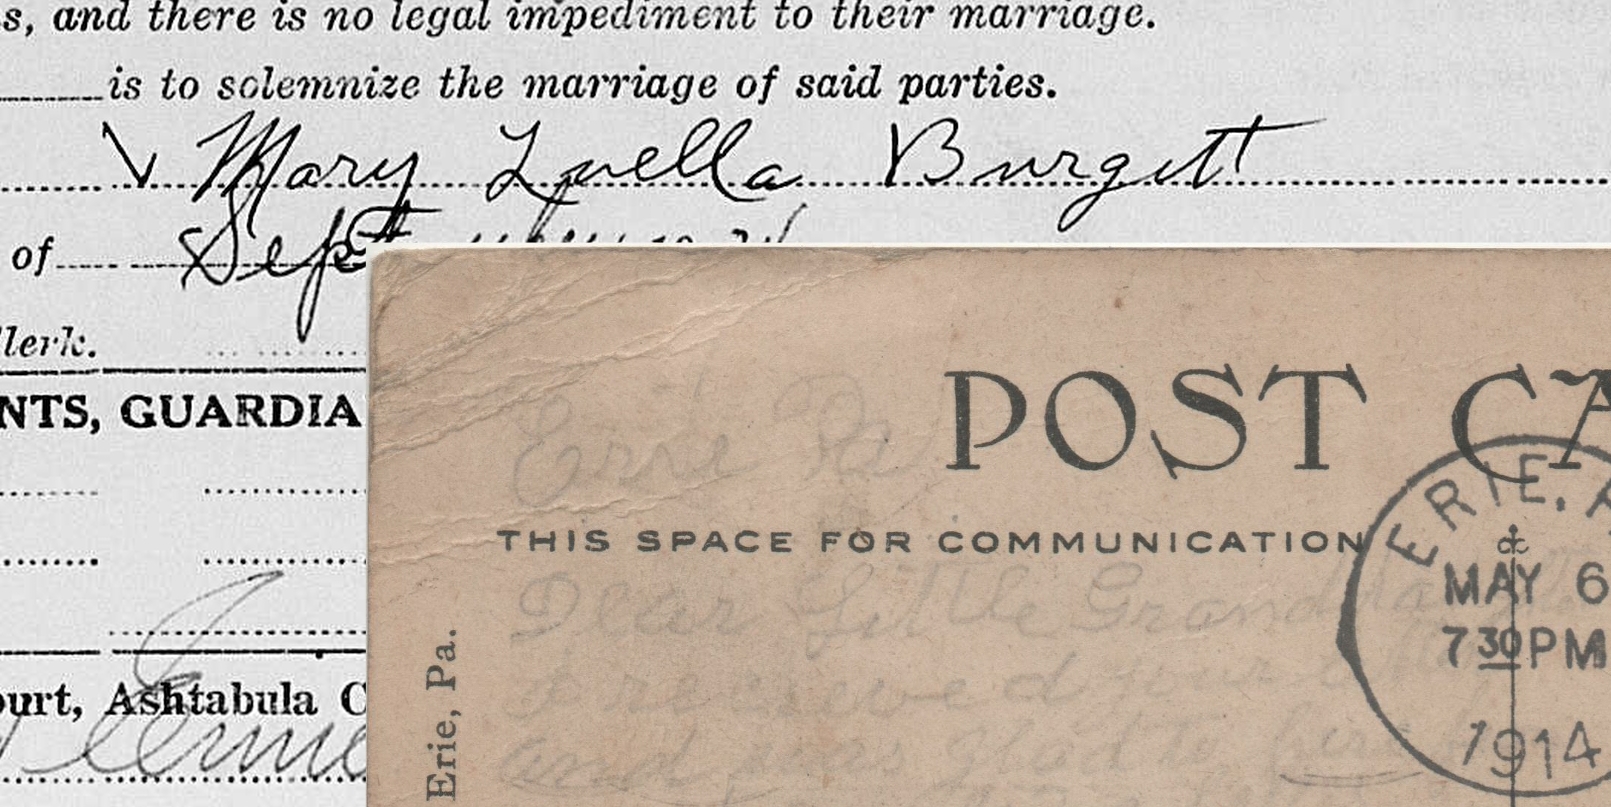 s, and there is no legal impediment to their marriage.
is to solemnize the marriage of said parties.
Mary Luella Burgett
of Sept
lerk.
NTS, GUARDIA
ourt, Ashtabula C
POST CA
Erie Pa
THIS SPACE FOR COMMUNICATION
ERIE, P
MAY 6
7 30 PM
1914
Dear Little Grandda
received your
and was glad to
Erie, Pa.